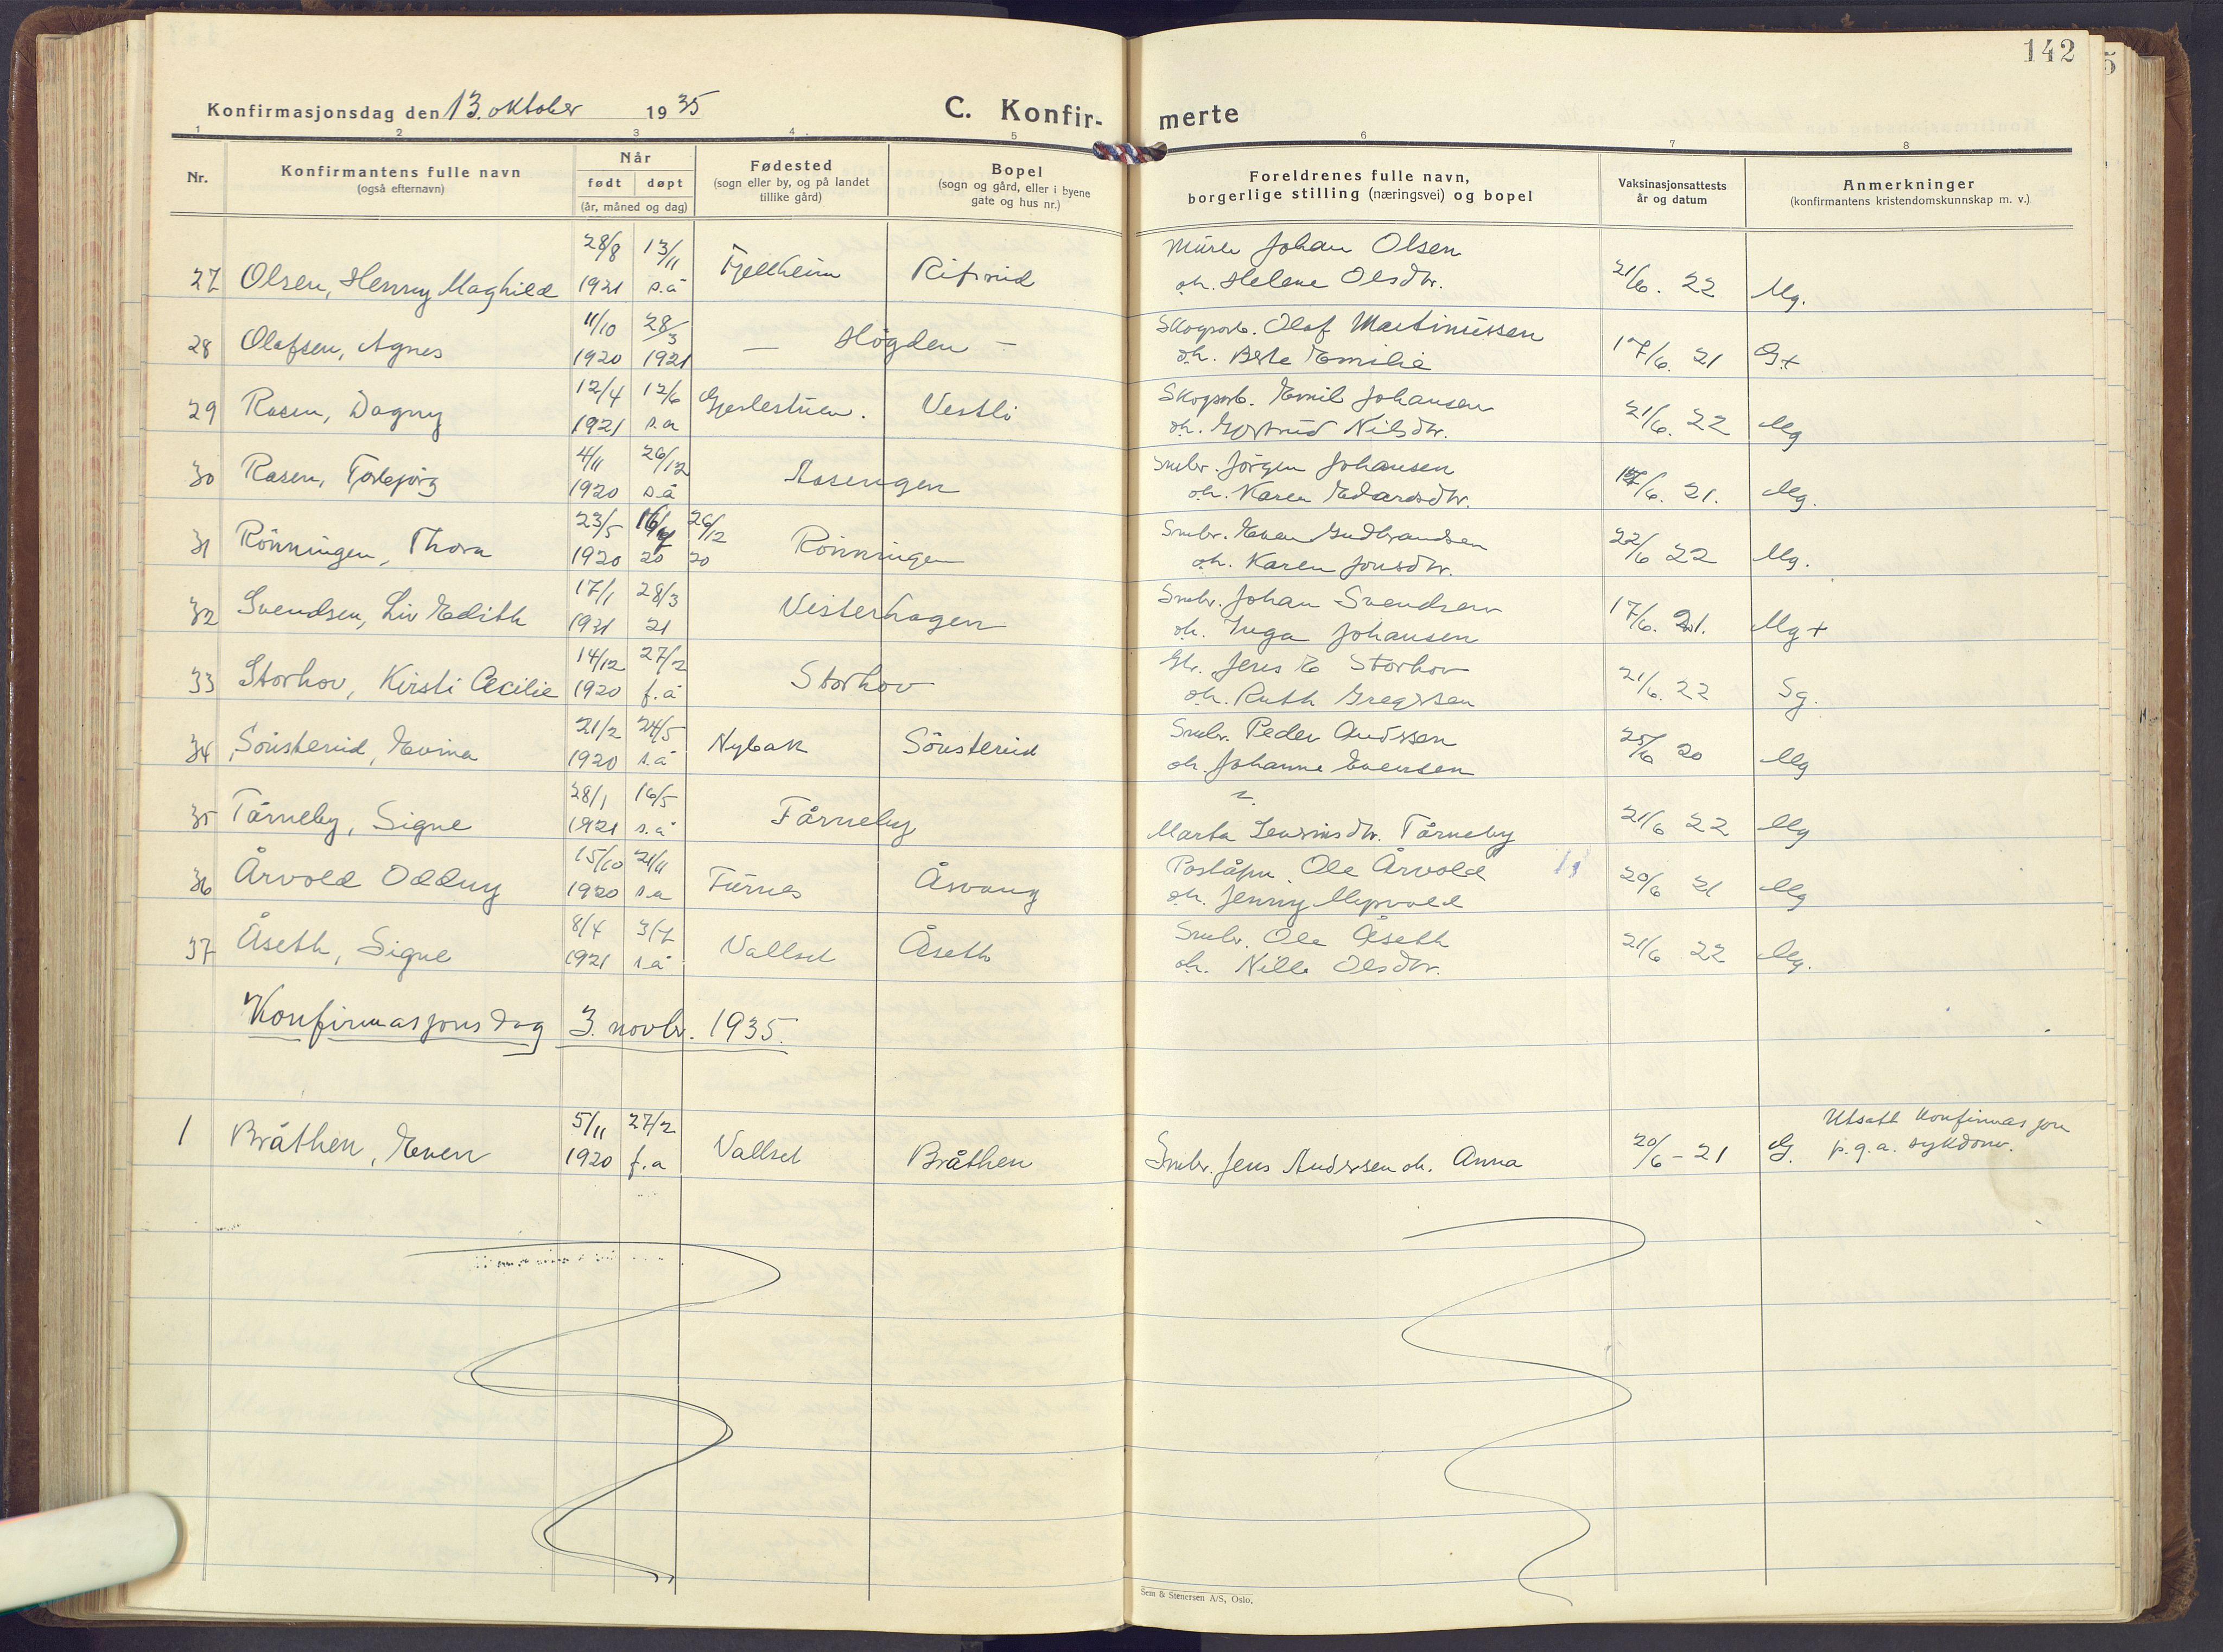 142
Konfirmasjonsdag den 13. oktober 1935
C. Konfir- merte
1 2 3 4 5 6 7 8
Nr.
Konfirmantens fulle navn
(også efternavn)
Når
født døpt
(år, måned og dag)
Fødested
(sogn eller by, og på landet
tillike gård)
Bopel
(sogn og gård, eller i byene
gate og hus nr.)
Foreldrenes fulle navn,
borgerlige stilling (næringsvei) og bopel
Vaksinasjonsattests
år og datum
Anmerkninger
(konfirmantens kristendomskunnskap m. v.)
28/8 13/11 Murer Johan Olsen
27 Olsen, Henny Maghild 1921 s.å Fjellheim oh. Helene Olsdtr. 21/6. 22 Mg.
11/10 28/3 Skogsarb. Olaf Martinussen
28 Olafsen, Agnes 1920 1921 — Høgden — oh. Berte Emilie 17/6. 21 G+
12/4 12/6 Skogsarb. Emil Johansen
29 Rasen, Dagny 1921 s.a Vestli oh. Gjertrud Nilsdtr. 21/6. 22 Mg
4/11 26/12 Smbr. Jörgen Johansen
30 Rasen, Torbjørg 1920 s.å Aasengen oh. Karen Edvardsdtr. 17/6. 21. Mg.
23/5 16/7 26/12 Smbr. Even Gudbrandsen
31 Rönningen, Thora 1920 20 20 Rönningen oh. Karen Jonsdtr. 22/6 22 Mg.
17/1 28/3 Smbr. Johan Svendsen
32 Svendsen, Liv Edith 1921 21 Vesterhagen oh. Inga Johansen 17/6. 21. Mg+
14/12 27/2 Gbr. Jens E Storhov
33 Storhov, Kirsti Cecilie 1920 f.å Storhov oh. Ruth Gregersen 21/6. 22 Sg.
21/2 24/5 Smbr. Peder Anderssen
34 Sönsterud, Evina 1920 s.å Nybak Sönsterud oh. Johanne Evensen 25/6 20 Mg
28/1 16/5
35 Tårneby, Signe 1921 s.å Tårneby Marta Laurinsdtr. Tårneby 21/6 22 Mg
15/10 21/11 Poståpn. Ole Årvold
36 Årvold Oddny 1920 s.a Furnes Åsvang oh. Jenny Myrvold 20/6 21 Mg
8/4 3/7 Smbr. Ole Åseth
37 Åseth, Signe 1921 s.å Vallset Åseth oh. Nille Olsdtr. 21/6 22 Mg.
Konfirmasjonsdag 3. novbr. 1935.
5/11 27/2 Utsatt konfirmasjon
1 Bråthen, Even 1920 f.a Vallset Bråthen Smbr. Jens Andersen oh. Anna 20/6 - 21 G. p.g.a. sykdom.
Sem & Stenersen A/S, Oslo.